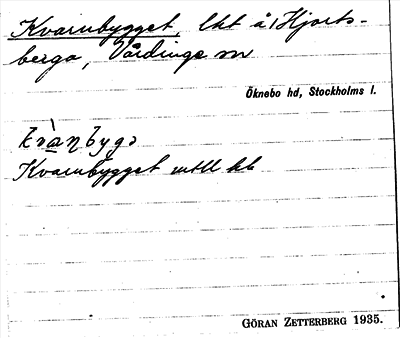 Kvarnbygget, lht å Hjorts-
berga, Vårdinge sn
Öknebo hd, Stockholms l.
kvàṇbygə
Kvarnbygget mtll kb
GÖRAN ZETTERBERG 1935.